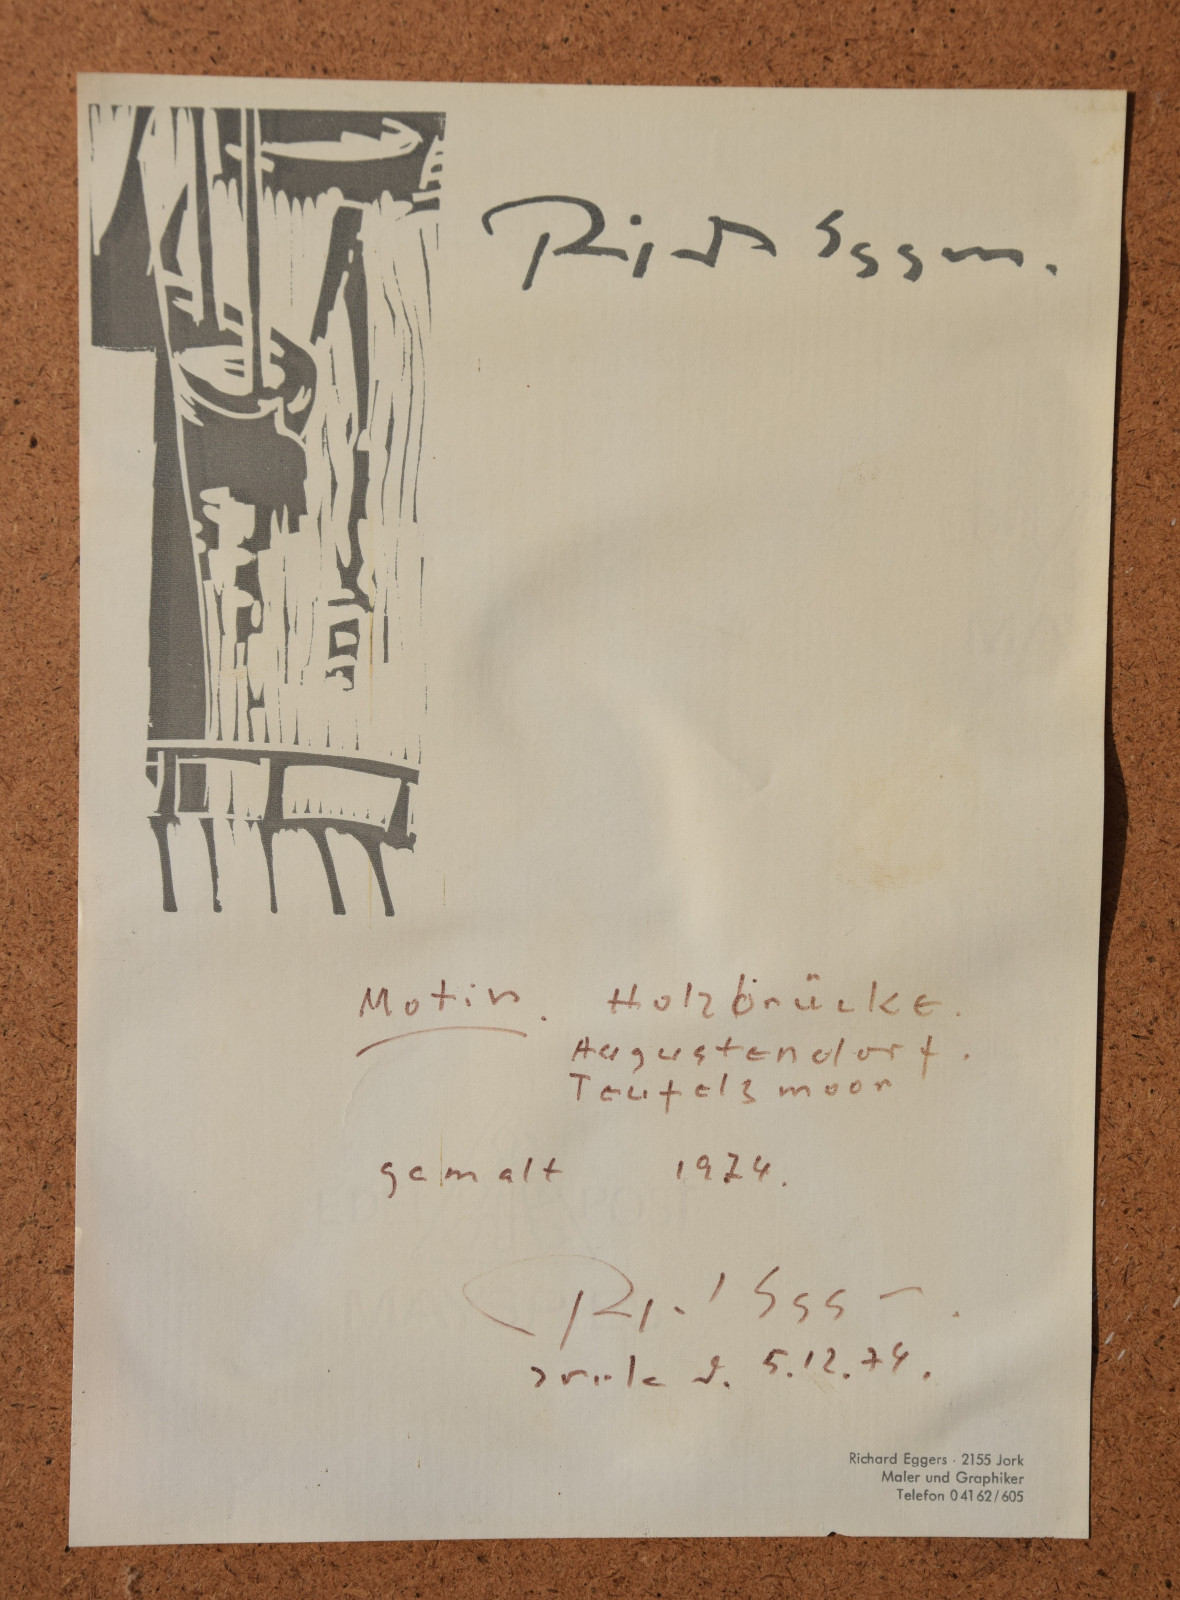 Richard Eggers.
Motiv. Holzbrücke.
Augustendorf.
Teufelsmoor
gemalt 1974.
Richard Eggers.
Jork d. 5.12.74.
Richard Eggers · 2155 Jork
Maler und Graphiker
Telefon 0 41 62 / 605